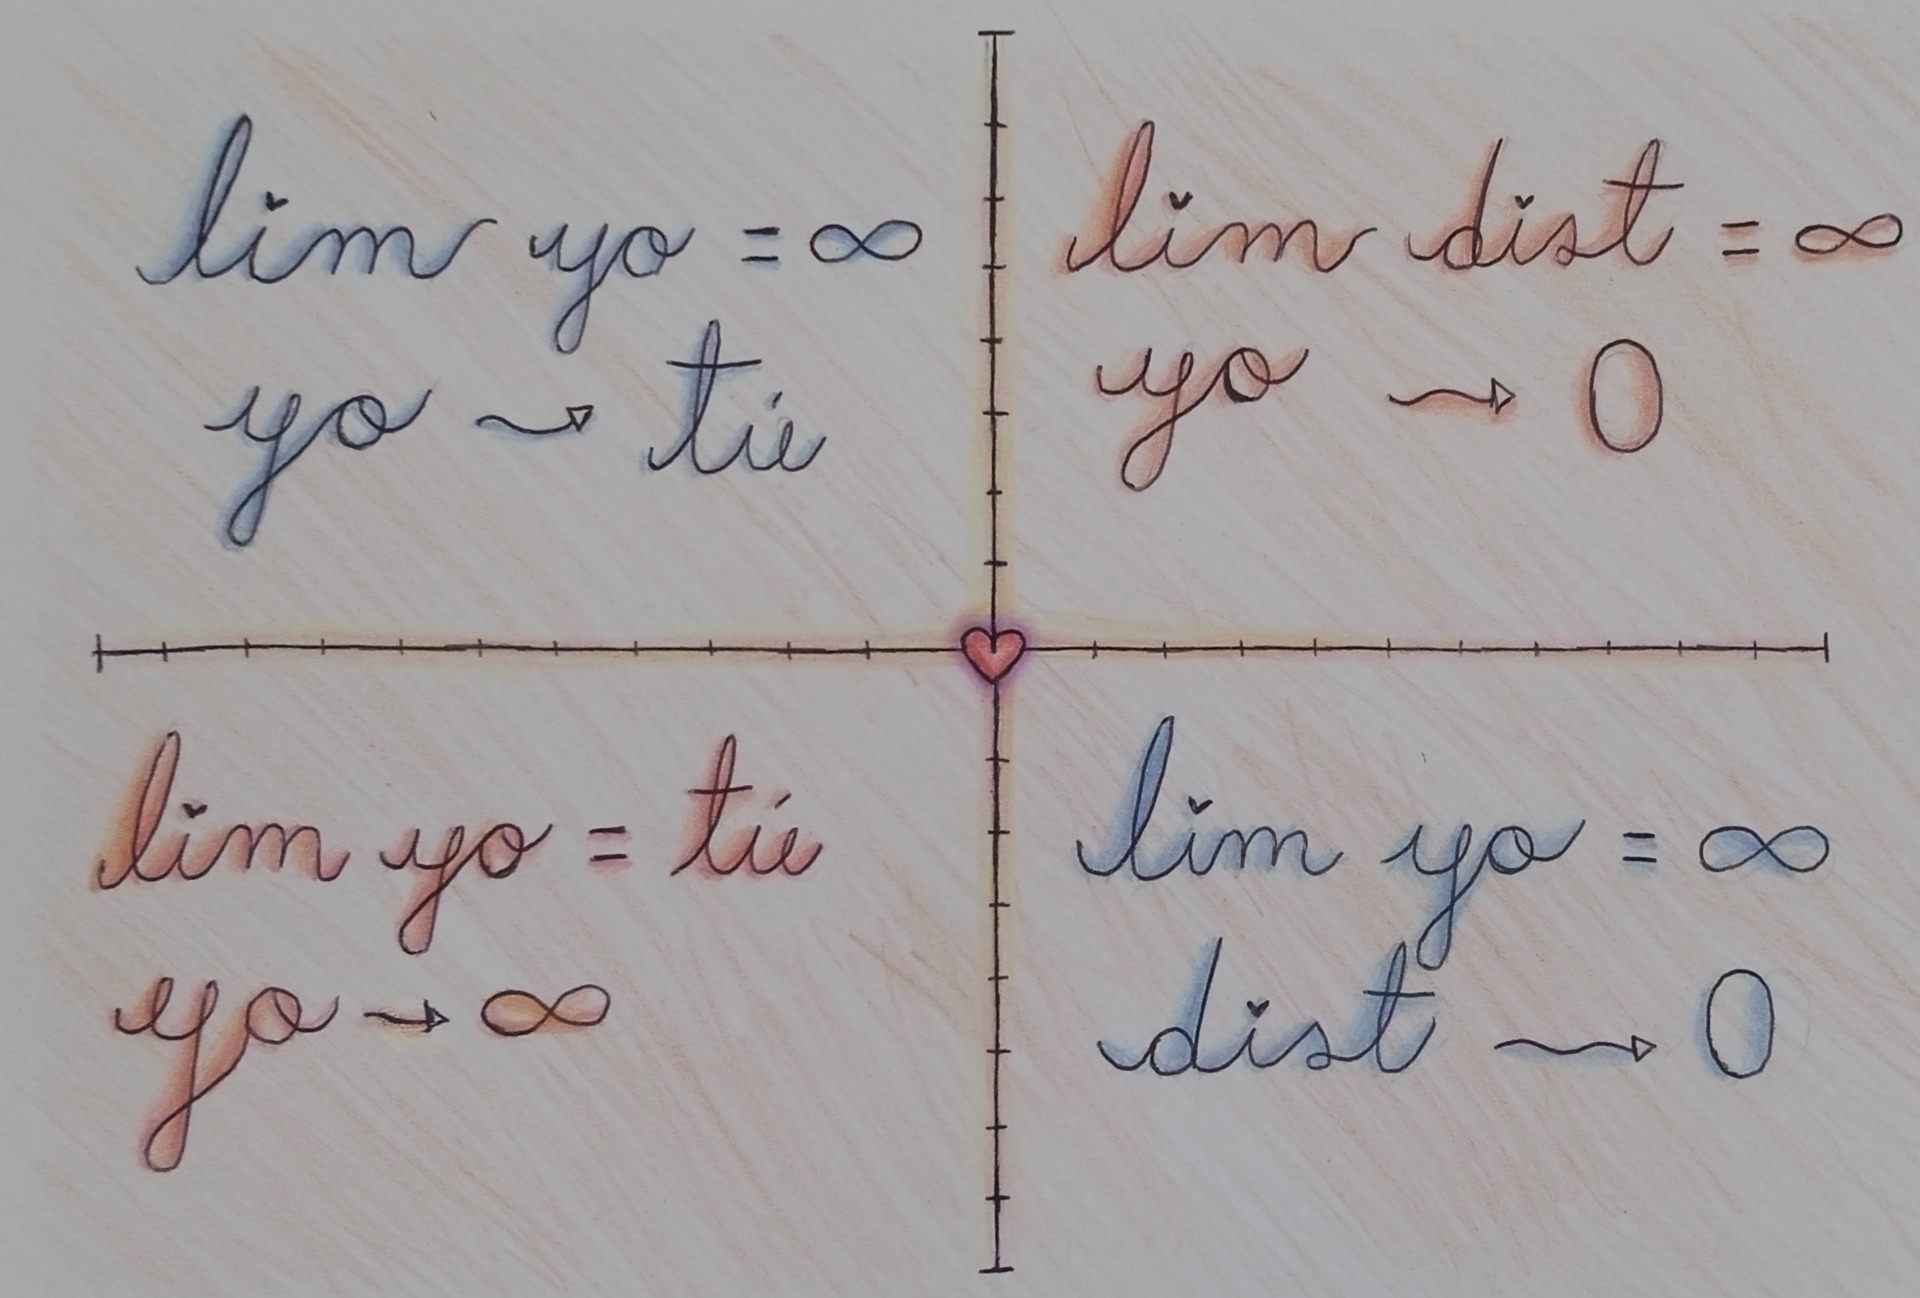 lim yo = ∞
yo → tú
lim dist = ∞
yo → 0
lim yo = tú
yo → ∞
lim yo = ∞
dist → 0